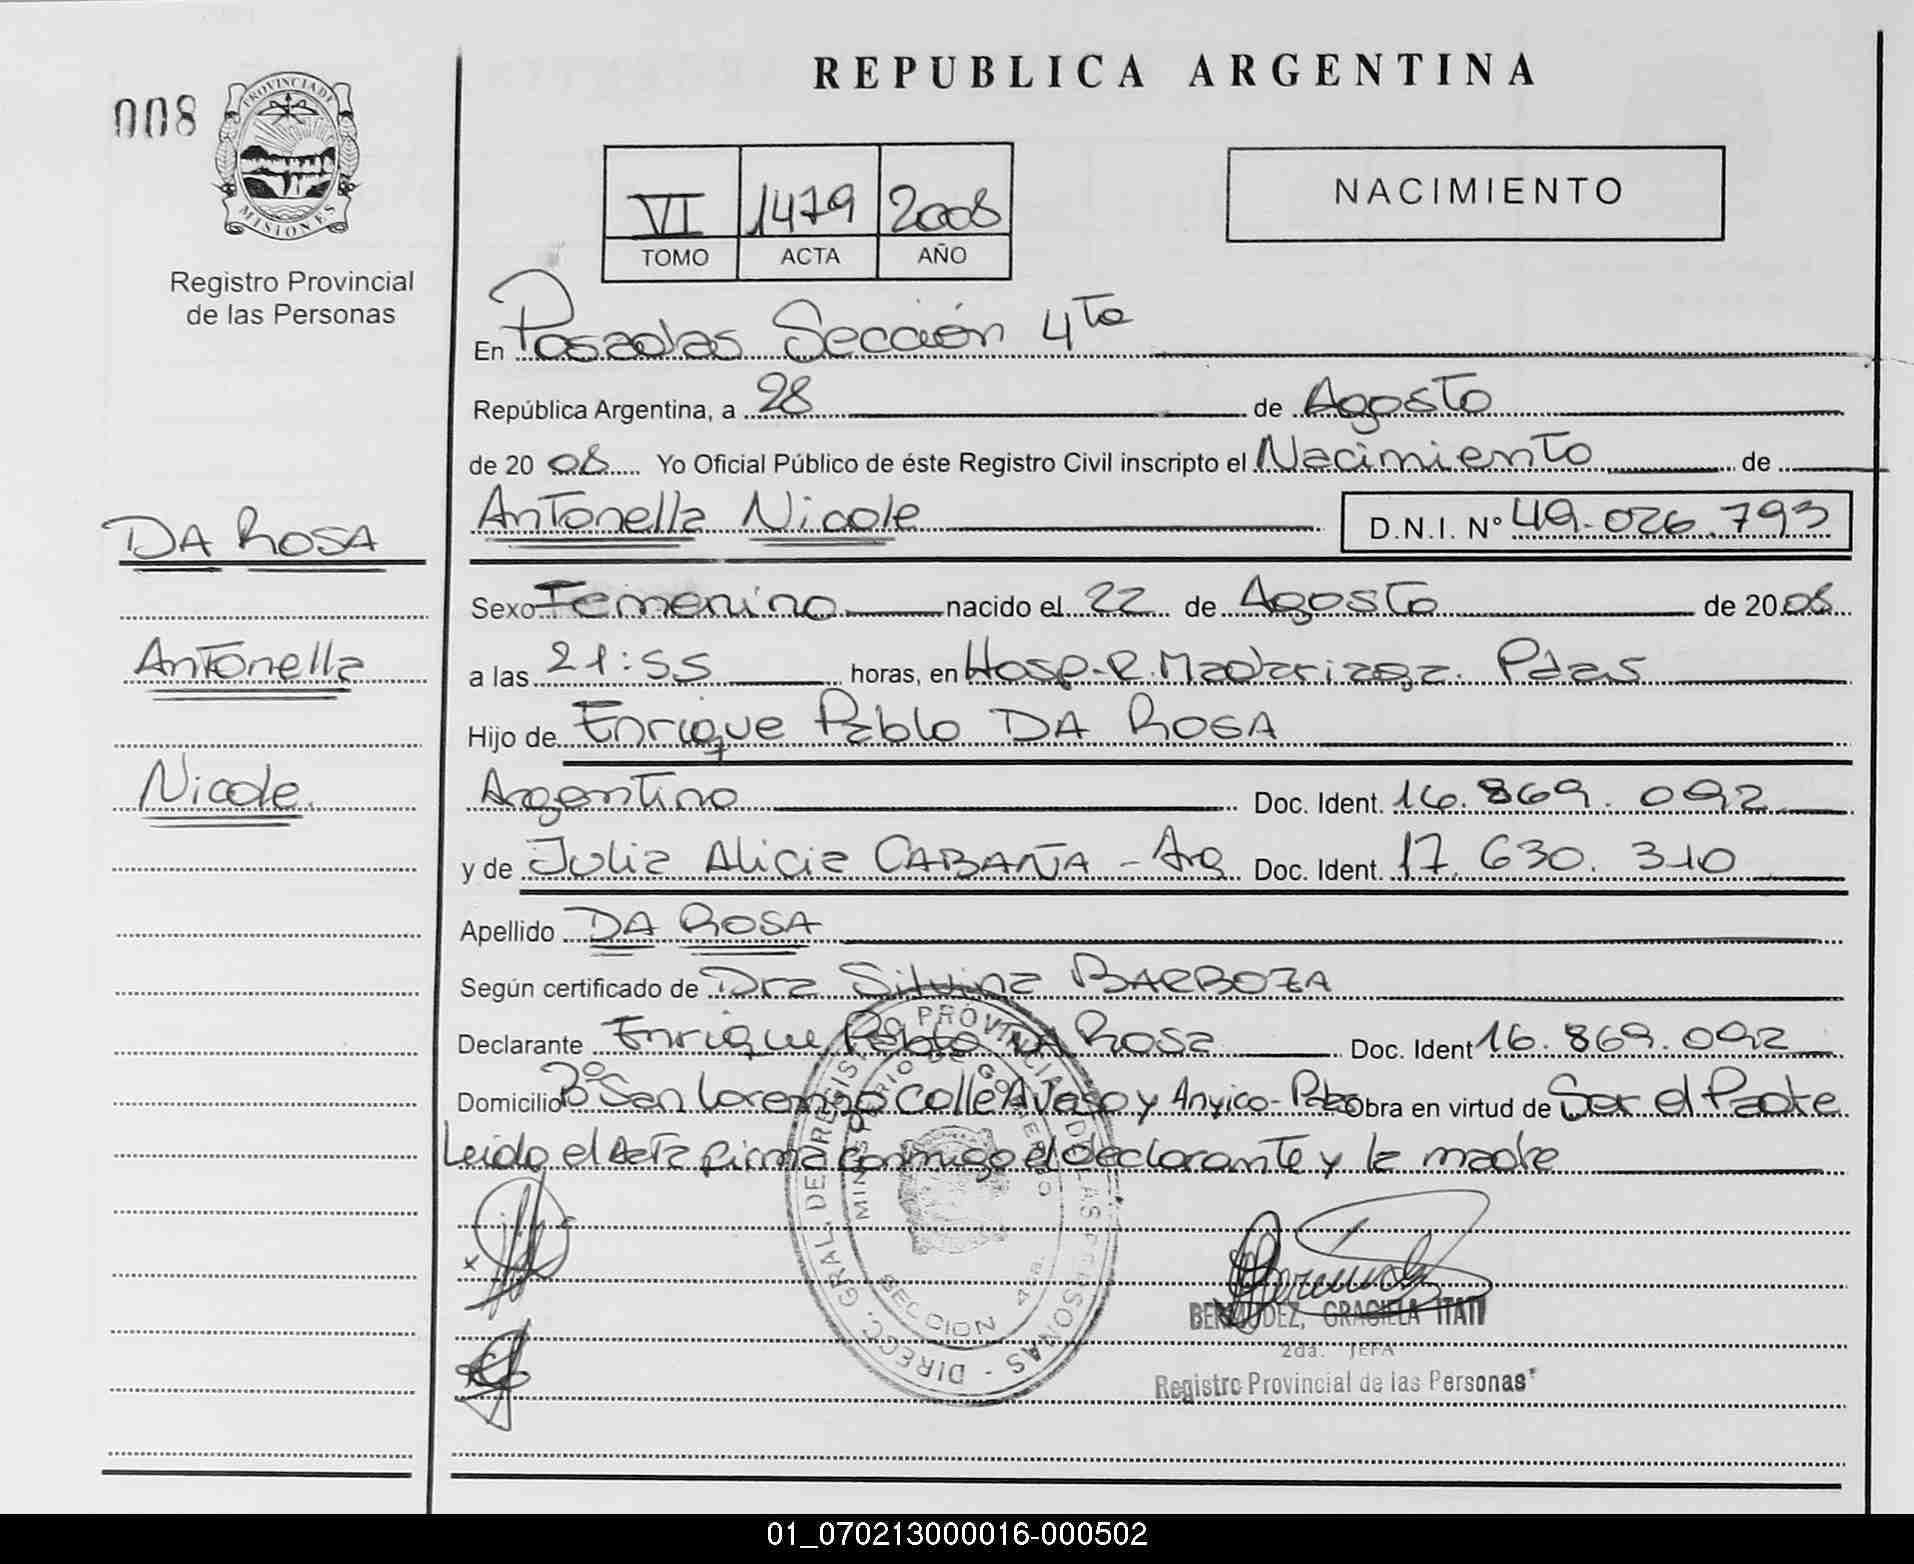 008
PROVINCIA DE
MISIONES
Registro Provincial
de las Personas
REPUBLICA ARGENTINA
VI 1479 2008
TOMO ACTA AÑO
NACIMIENTO
En Posadas Sección 4ta
República Argentina, a 28 de Agosto
de 20 08 Yo Oficial Público de éste Registro Civil inscripto el Nacimiento de
Antonella Nicole D.N.I. N° 49.026.793
DA ROSA
Antonella
Nicole.
Sexo Femenino nacido el 22 de Agosto de 20 08
a las 21:55 horas, en Hosp. R. Madariaga. Pdas
Hijo de Enrique Pablo DA ROSA
Argentino Doc. Ident. 16.869.092
y de Julia Alicia CABAÑA - Arg Doc. Ident. 17.630.310
Apellido DA ROSA
Según certificado de Dra Silvina BARBOZA
Declarante Enrique Pablo DA Rosa Doc. Ident 16.869.092
Domicilio Bº San Lorenzo Calle y Obra en virtud de Ser el Padre
Leido el Acta firma conmigo el declarante y la madre
DIRECC. GRAL. DE REGISTRO PROVINCIAL DE LAS PERSONAS
MINISTERIO DE GOBIERNO
SECCION 4ta.
BERMUDEZ, GRACIELA ITATI
2da. JEFA
Registro Provincial de las Personas
01_070213000016-000502